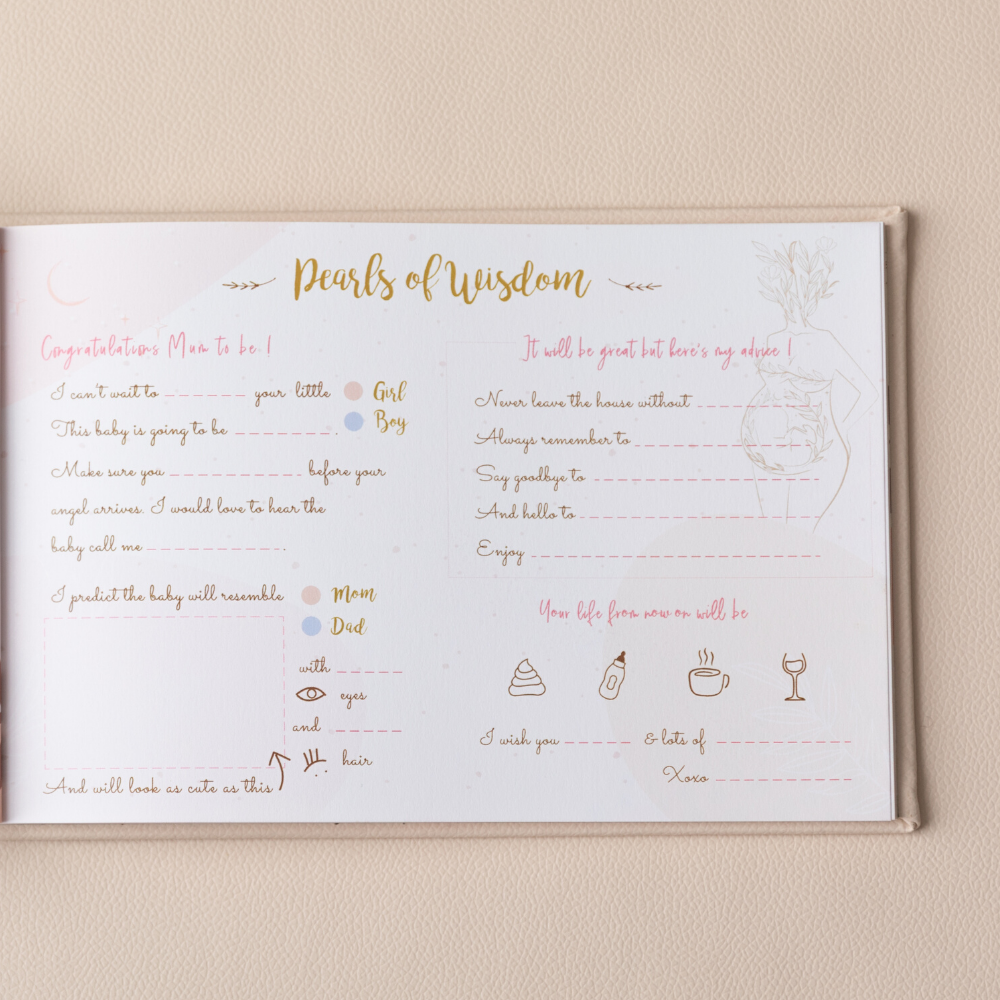 Pearls of Wisdom
Congratulations Mum to be !
I can't wait to _ _ _ _ _ _ _ _ your little
Girl
Boy
This baby is going to be _ _ _ _ _ _ _ _ _ _ .
Make sure you _ _ _ _ _ _ _ _ _ _ _ _ _ before your
angel arrives. I would love to hear the
baby call me _ _ _ _ _ _ _ _ _ _ _ _ _ .
I predict the baby will resemble
Mom
Dad
with _ _ _ _ _ _
eyes
and _ _ _ _ _ _
hair
And will look as cute as this
It will be great but here's my advice !
Never leave the house without _ _ _ _ _ _ _ _ _ _ _
Always remember to _ _ _ _ _ _ _ _ _ _ _ _ _ _ _ _
Say goodbye to _ _ _ _ _ _ _ _ _ _ _ _ _ _ _ _ _ _
And hello to _ _ _ _ _ _ _ _ _ _ _ _ _ _ _ _ _ _ _ _
Enjoy _ _ _ _ _ _ _ _ _ _ _ _ _ _ _ _ _ _ _ _ _ _ _ _
Your life from now on will be
I wish you _ _ _ _ _ _ & lots of _ _ _ _ _ _ _ _ _ _ _
Xoxo _ _ _ _ _ _ _ _ _ _ _